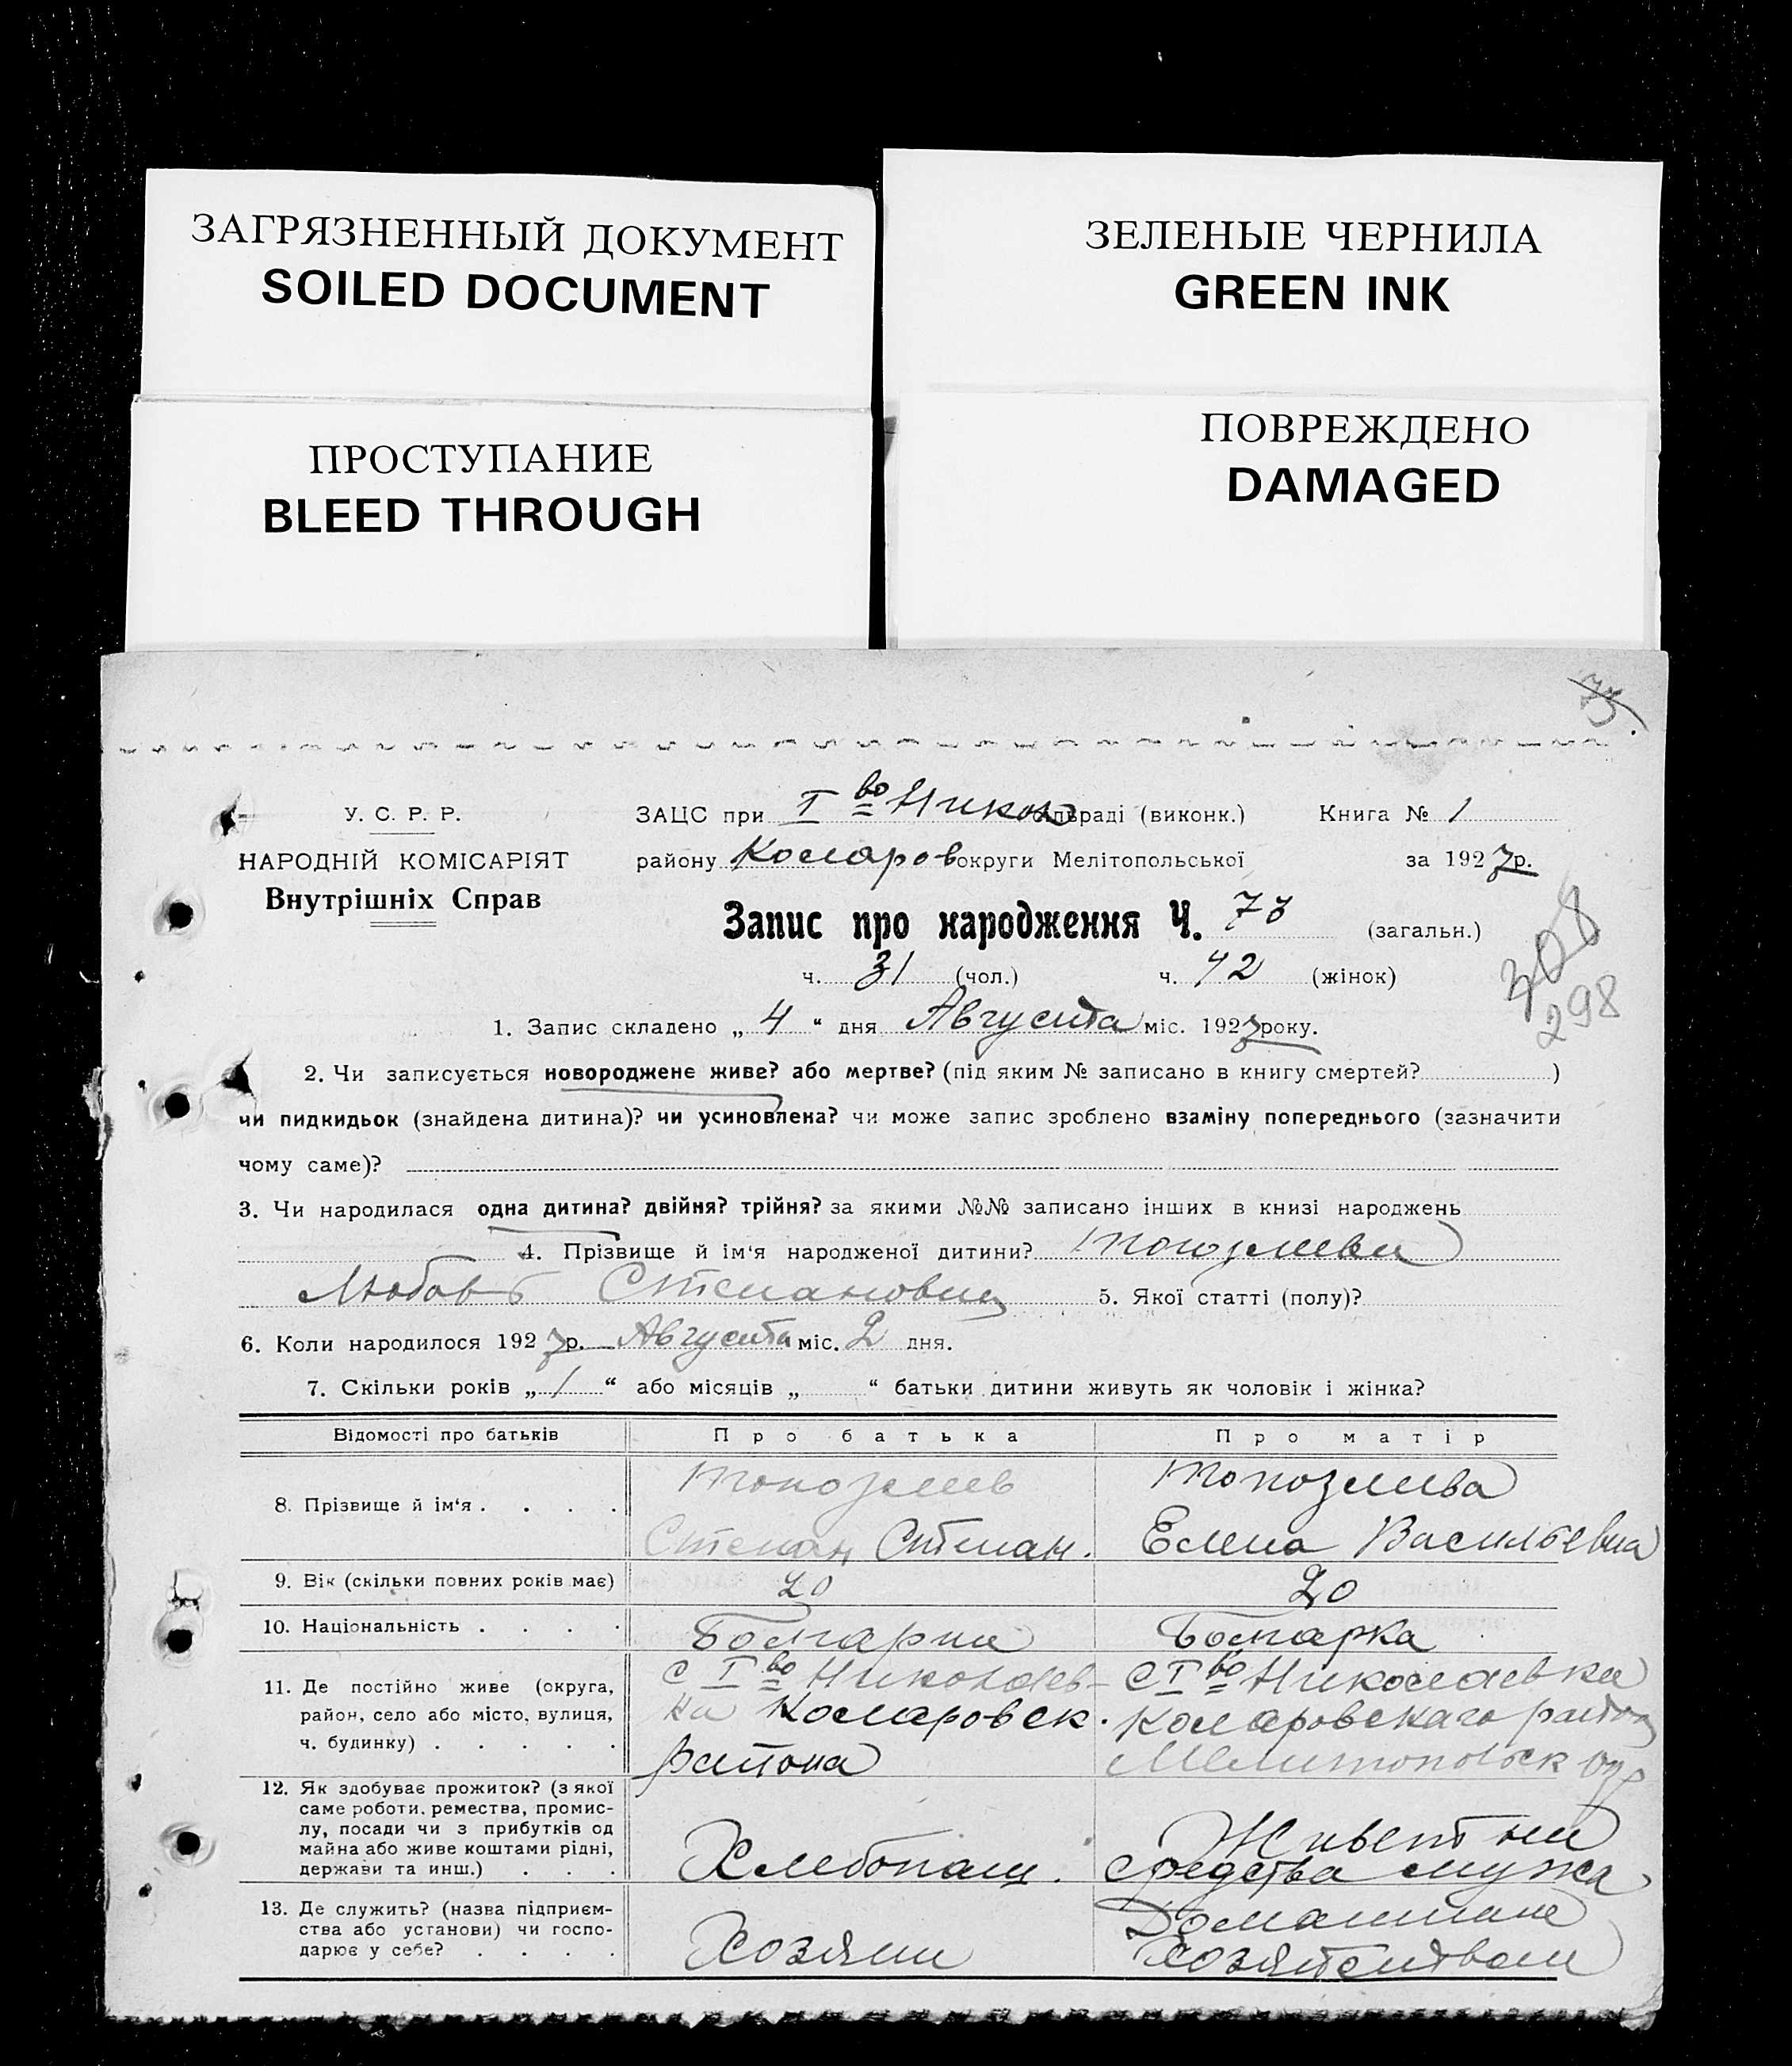 ЗАГРЯЗНЕННЫЙ ДОКУМЕНТ
SOILED DOCUMENT
ЗЕЛЕНЫЕ ЧЕРНИЛА
GREEN INK
ПРОСТУПАНИЕ
BLEED THROUGH
ПОВРЕЖДЕНО
DAMAGED
У. С. Р. Р.
НАРОДНІЙ КОМІСАРІЯТ
Внутрішніх Справ
ЗАЦС при I во Никол сільраді (виконк.) Книга № 1
району Комаров округи Мелітопольської за 1927р.
Запис про народження Ч. 73 (загальн.)
ч. 31 (чол.) ч. 42 (жінок)
308
298
1. Запис складено „ 4 “ дня Августа міс. 1927 року.
2. Чи записується новороджене живе? або мертве? (під яким № записано в книгу смертей? )
чи пидкидьок (знайдена дитина)? чи усиновлена? чи може запис зроблено взаміну попереднього (зазначити
чому саме)?
3. Чи народилася одна дитина? двійня? трійня? за якими №№ записано інших в книзі народжень
4. Прізвище й ім‘я народженої дитини?
Любовь Степановна 5. Якої статті (полу)?
6. Коли народилося 1927р. Августа міс. 2 дня.
7. Скільки років „ 1 “ або місяців „ “ батьки дитини живуть як чоловік і жінка?
Відомості про батьків Про батька Про матір
8. Прізвище й ім‘я . . . .
Топозлев
Степан Степан.
Топозлева
Елена Васильевна
9. Вік (скільки повних років має) 20 20
10. Національність . . . . Болгарин Болгарка
11. Де постійно живе (округа,
район, село або місто, вулиця,
ч. будинку) . . . . .
с I во Николаев-
ка Комаровск.
района
с I во Николаевка
Комаровскаго района
Мелитопольск окр
12. Як здобуває прожиток? (з якої
саме роботи, ремества, промис-
лу, посади чи з прибутків од
майна або живе коштами рідні,
держави та инш.) . . .
Хлебопаш.
Живет на
средства мужа
13. Де служить? (назва підприєм-
ства або установи) чи госпо-
дарює у себе? . . . .
Хозяин
Домашним
хозяйством